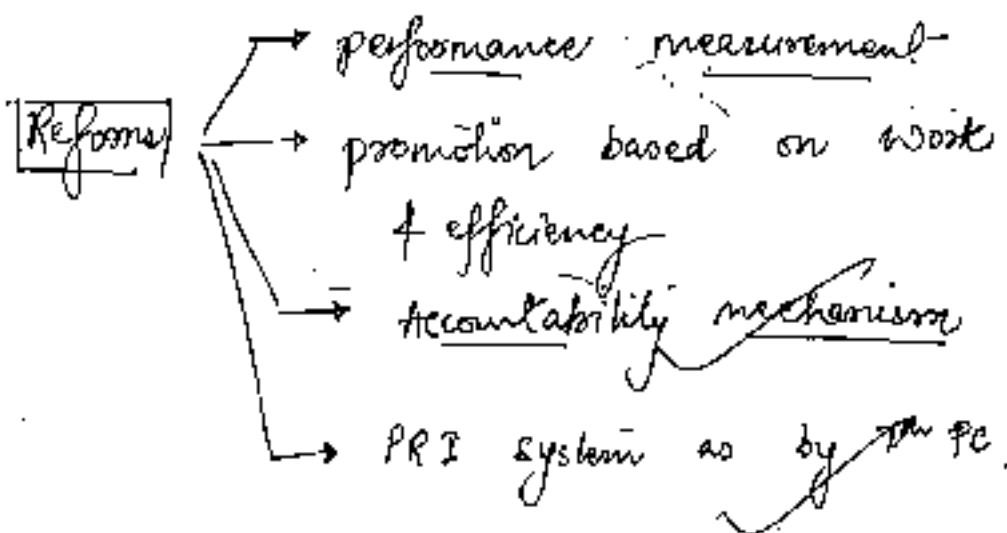 performance measurement
Reforms
promotion based on work
& efficiency
Accountability mechanism
PRI system as by PC.